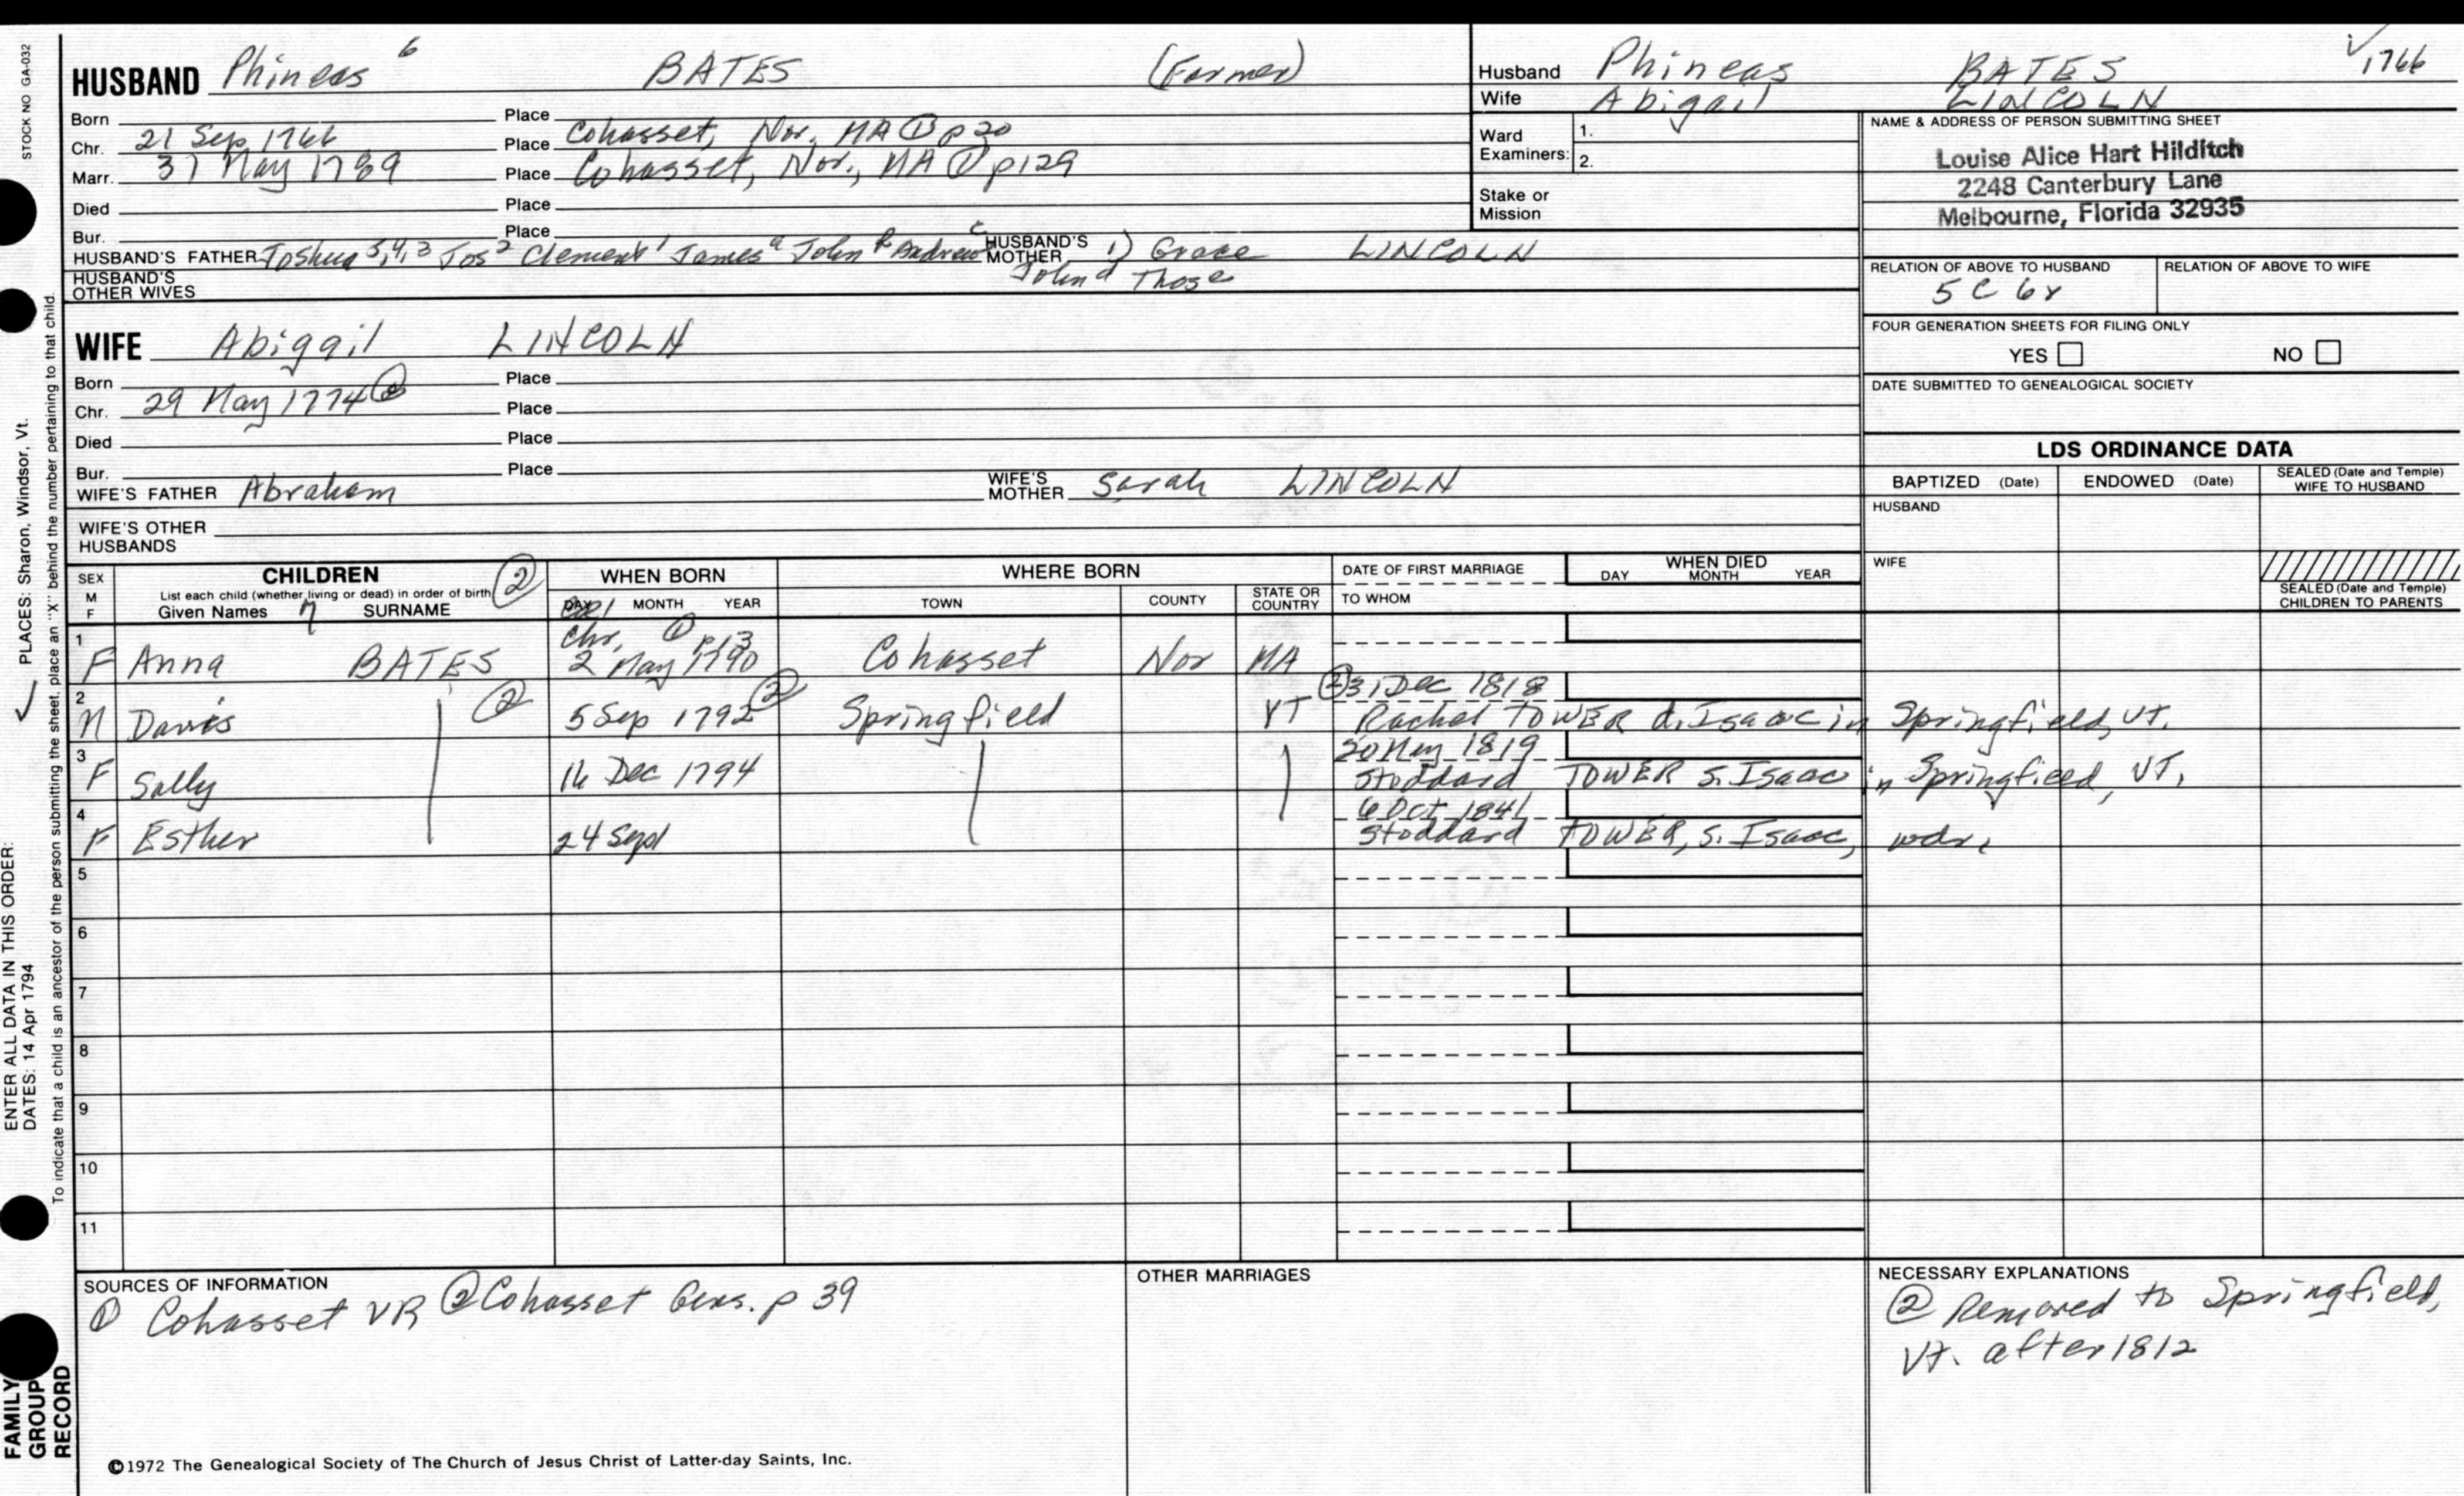 STOCK NO GA-032
HUSBAND Phineas 6 BATES (Farmer)
Born Place
Chr. 21 Sep 1766 Place Cohasset, Nor, MA ① p 20
Marr. 31 May 1789 Place Cohasset, Nor., MA ① p 129
Died Place
Bur. Place
HUSBAND'S FATHER Joshua 5,4,3 Jos 2 Clement 1 James a John b Andrew c HUSBAND'S MOTHER 1) Grace LINCOLN
John d Thos e
HUSBAND'S OTHER WIVES
WIFE Abigail LINCOLN
Born Place
Chr. 29 May 1774 ② Place
Died Place
Bur. Place
WIFE'S FATHER Abraham WIFE'S MOTHER Sarah LINCOLN
WIFE'S OTHER HUSBANDS
Husband Phineas BATES 1766
Wife Abigail LINCOLN
Ward Examiners: 1.
2.
Stake or Mission
NAME & ADDRESS OF PERSON SUBMITTING SHEET
Louise Alice Hart Hilditch
2248 Canterbury Lane
Melbourne, Florida 32935
RELATION OF ABOVE TO HUSBAND RELATION OF ABOVE TO WIFE
5 C 6 r
FOUR GENERATION SHEETS FOR FILING ONLY
YES NO
DATE SUBMITTED TO GENEALOGICAL SOCIETY
LDS ORDINANCE DATA
BAPTIZED (Date) ENDOWED (Date) SEALED (Date and Temple) WIFE TO HUSBAND
HUSBAND
WIFE
SEALED (Date and Temple) CHILDREN TO PARENTS
SEX M F CHILDREN ② WHEN BORN WHERE BORN DATE OF FIRST MARRIAGE WHEN DIED
List each child (whether living or dead) in order of birth DAY MONTH YEAR
Given Names 7 SURNAME DAY MONTH YEAR TOWN COUNTY STATE OR COUNTRY TO WHOM
Chr. ① p 13
1 F Anna BATES 2 May 1790 Cohasset Nor MA
② 31 Dec 1818
2 M Davis ② 5 Sep 1792 ② Springfield VT Rachel TOWER d. Isaac in Springfield, Vt.
20 May 1819
3 F Sally 16 Dec 1794 Stoddard TOWER s. Isaac in Springfield, VT.
6 Oct 1841
4 F Esther 24 Sept Stoddard TOWER, s. Isaac, wdr.
5
6
7
8
9
10
11
SOURCES OF INFORMATION
① Cohasset VR ② Cohasset Gens. p 39
OTHER MARRIAGES
NECESSARY EXPLANATIONS
② Removed to Springfield,
Vt. after 1812
©1972 The Genealogical Society of The Church of Jesus Christ of Latter-day Saints, Inc.
ENTER ALL DATA IN THIS ORDER:
DATES: 14 Apr 1794 PLACES: Sharon, Windsor, Vt.
To indicate that a child is an ancestor of the person submitting the sheet, place an "X" behind the number pertaining to that child.
FAMILY
GROUP
RECORD